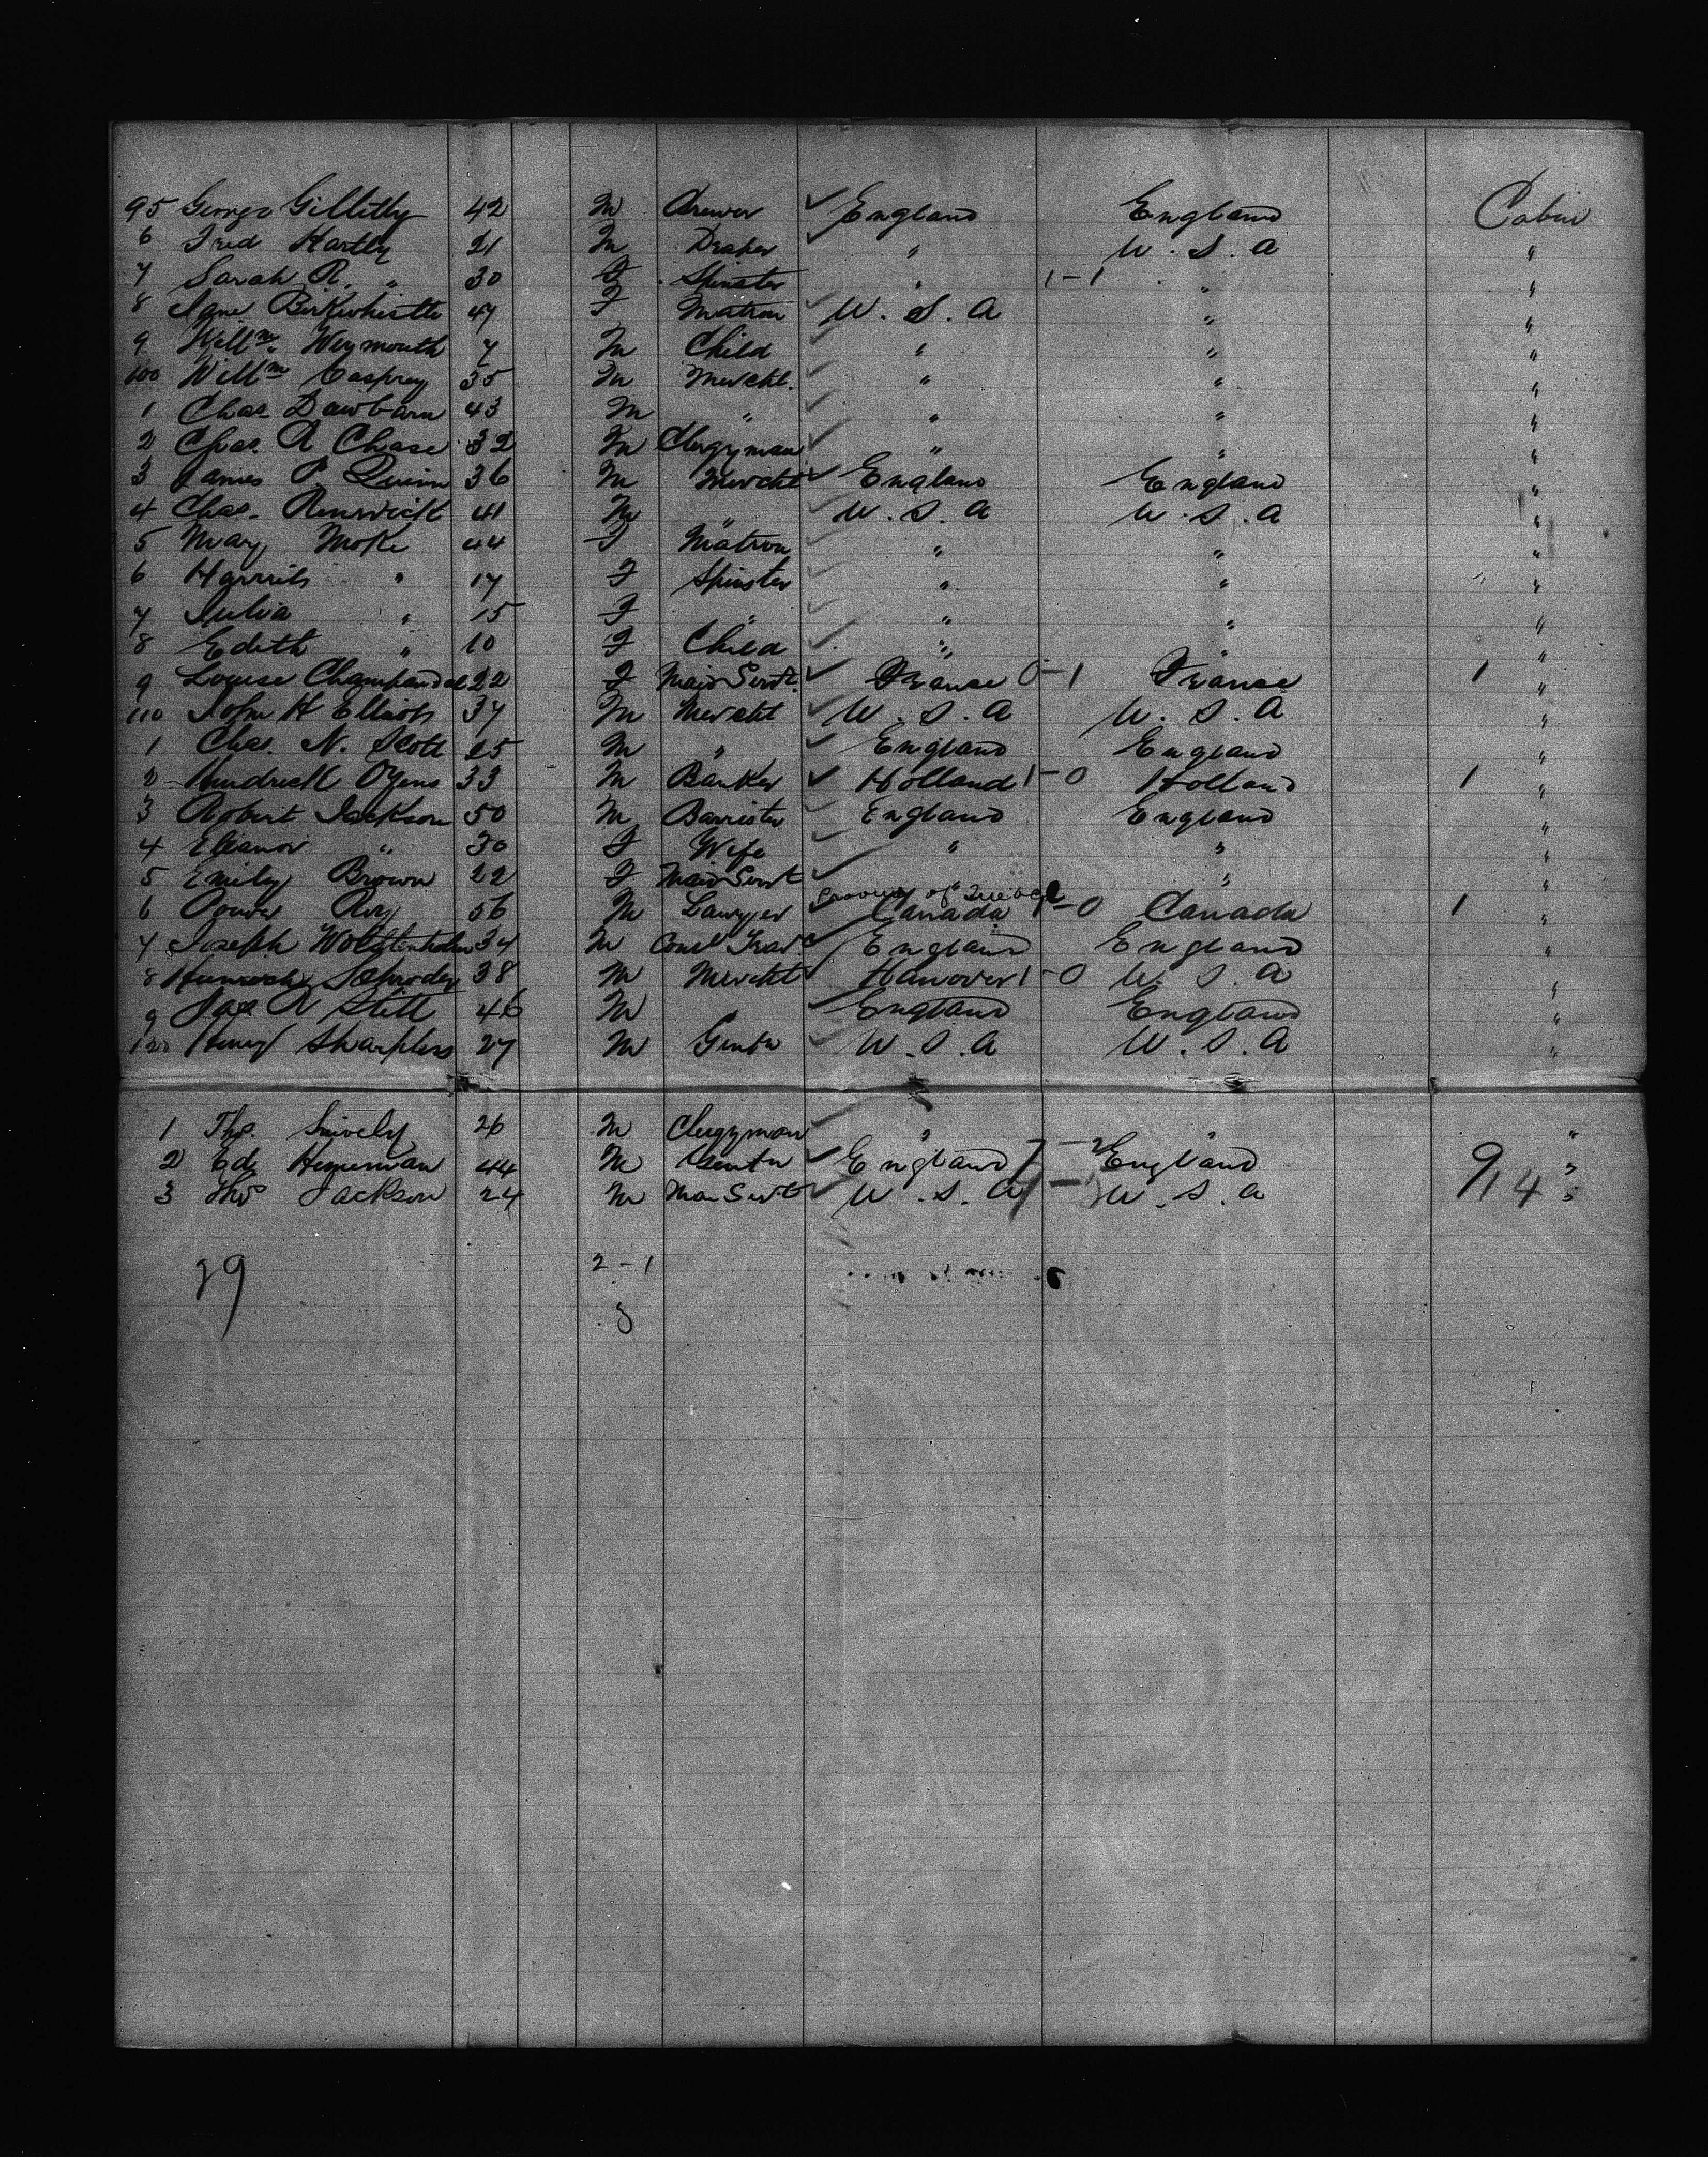 95 George Gillitly 42 M Brewer ✓ England England Cabin
6 Fred Hartly 21 M Draper ✓ " U.S.A "
7 Sarah R. " 30 F Spinster " 1-1 " "
8 Jane Birkwhistle 47 F Matron ✓ U.S.A " "
9 Willm. Weymouth 7 M Child ✓ " " "
100 Willm 35 M Mercht. ✓ " " "
1 Chas. Dawbarn 43 M " ✓ " " "
2 Chas. R Chase 32 M Clergyman ✓ " " "
3 James P. Quinn 36 M Mercht ✓ England England "
4 Chas. Renwick 41 M " U.S.A U.S.A "
5 Mary Moke 44 F Matron ✓ " " "
6 " 17 F Spinster ✓ " " "
7 Julia " 15 F " ✓ " " "
8 Edith " 10 F Child ✓ " " "
9 Louise 22 F Maid Servt. ✓ France 0-1 France 1 "
110 John H Elliott 37 M Mercht ✓ U.S.A U.S.A "
1 Chas. N. Scott 25 M " ✓ England England "
2 Hendrick Oyens 33 M Banker ✓ Holland 1-0 Holland 1 "
3 Robert Jackson 50 M Barrister ✓ England England "
4 Eleanor " 30 F Wife ✓ " " "
5 Emily Brown 22 F Maid Servt ✓ " " "
6 Roy 56 M Lawyer ✓ Province of Quebec Canada 1-0 Canada 1 "
7 Joseph Wolstenholm 34 M Coml Travr ✓ England England "
8 Schroder 38 M Mercht ✓ Hanover 1-0 U.S.A "
9 Jas R Stitt 46 M ✓ England England "
120 Henry Sharpless 27 M Gentn ✓ U.S.A U.S.A "
1 Thos. Snively 26 M Clergyman ✓ " " "
2 Ed. 44 M Gentn ✓ England England "
3 Thos Jackson 24 M Man Servt ✓ U.S.A U.S.A 9/14 "
29 2-1
3